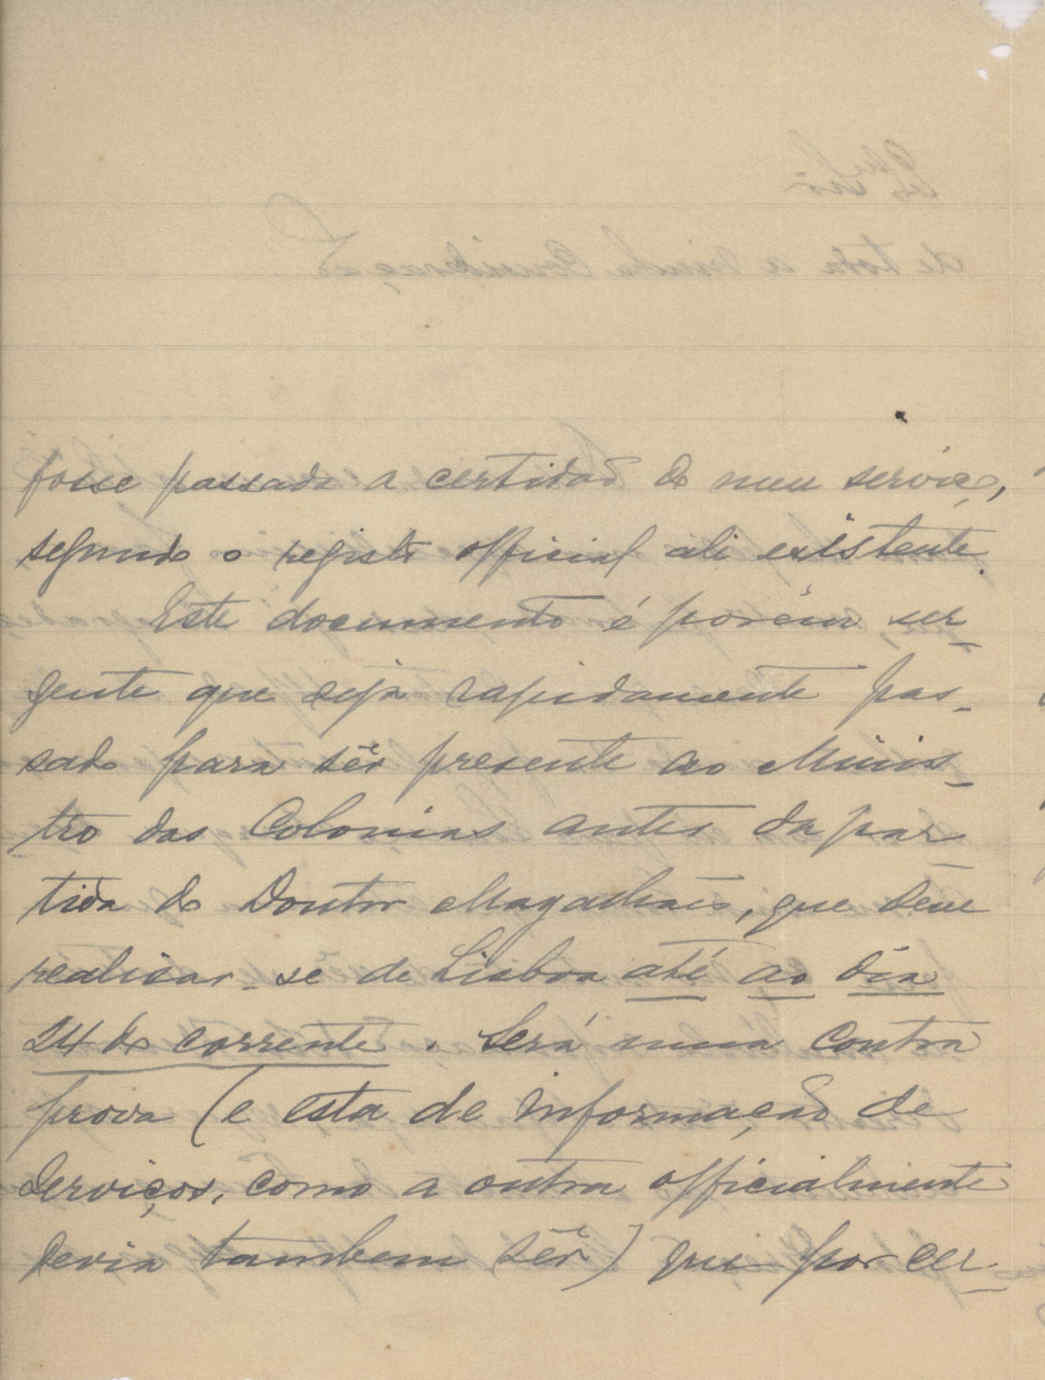 fosse passada a certidaõ do meu serviço,
segundo o registo official ali existente.
Este documento é porêm ur-
gente que seja rapidamente pas-
sado para sêr presente ao Minis-
tro das Colonias antes da par
tida do Doutor Magalhães, que deve
realisar-se de Lisboa até ao dia
24 do corrente. Será uma contra
prova (e esta de informação de
Serviços, como a outra officialmente
devia tambem sêr) que por cer-